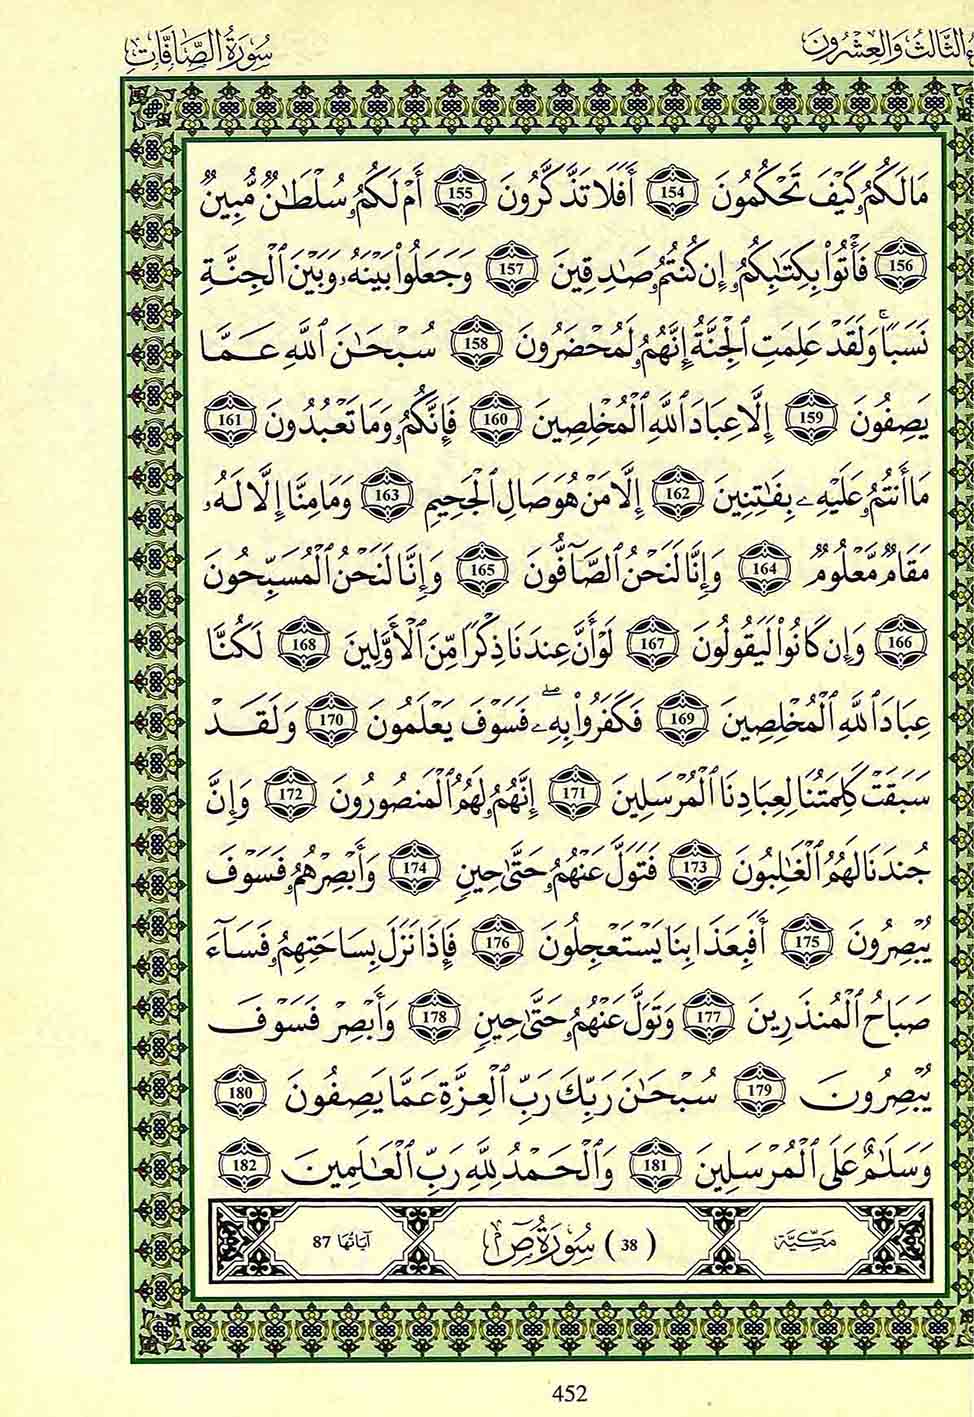 الثَّالِثُ وَالعِشْرُونَ
سُورَةُ الصَّافَّاتِ
مَا لَكُمُۥ كَيْفَ تَحْكُمُونَ 154 أَفَلَا تَذَّكَّرُونَ 155 أَمْ لَكُمُۥ سُلْطَٰنٌ مُّبِينٌ
156 فَأْتُوا۟ بِكِتَٰبِكُمُۥ إِن كُنتُمُۥ صَٰدِقِينَ 157 وَجَعَلُوا۟ بَيْنَهُۥ وَبَيْنَ ٱلْجِنَّةِ
نَسَبًا ۚ وَلَقَدْ عَلِمَتِ ٱلْجِنَّةُ إِنَّهُمُۥ لَمُحْضَرُونَ 158 سُبْحَٰنَ ٱللَّهِ عَمَّا
يَصِفُونَ 159 إِلَّا عِبَادَ ٱللَّهِ ٱلْمُخْلِصِينَ 160 فَإِنَّكُمُۥ وَمَا تَعْبُدُونَ 161
مَا أَنتُمُۥ عَلَيْهِۦ بِفَٰتِنِينَ 162 إِلَّا مَنْ هُوَ صَالِ ٱلْجَحِيمِ 163 وَمَا مِنَّا إِلَّا لَهُۥ
مَقَامٌ مَّعْلُومٌ 164 وَإِنَّا لَنَحْنُ ٱلصَّآفُّونَ 165 وَإِنَّا لَنَحْنُ ٱلْمُسَبِّحُونَ
166 وَإِن كَانُوا۟ لَيَقُولُونَ 167 لَوْ أَنَّ عِندَنَا ذِكْرًا مِّنَ ٱلْأَوَّلِينَ 168 لَكُنَّا
عِبَادَ ٱللَّهِ ٱلْمُخْلِصِينَ 169 فَكَفَرُوا۟ بِهِۦ ۖ فَسَوْفَ يَعْلَمُونَ 170 وَلَقَدْ
سَبَقَتْ كَلِمَتُنَا لِعِبَادِنَا ٱلْمُرْسَلِينَ 171 إِنَّهُمُۥ لَهُمُ ٱلْمَنصُورُونَ 172 وَإِنَّ
جُندَنَا لَهُمُ ٱلْغَٰلِبُونَ 173 فَتَوَلَّ عَنْهُمُۥ حَتَّىٰ حِينٍ 174 وَأَبْصِرْهُمُۥ فَسَوْفَ
يُبْصِرُونَ 175 أَفَبِعَذَابِنَا يَسْتَعْجِلُونَ 176 فَإِذَا نَزَلَ بِسَاحَتِهِمُۥ فَسَآءَ
صَبَاحُ ٱلْمُنذَرِينَ 177 وَتَوَلَّ عَنْهُمُۥ حَتَّىٰ حِينٍ 178 وَأَبْصِرْ فَسَوْفَ
يُبْصِرُونَ 179 سُبْحَٰنَ رَبِّكَ رَبِّ ٱلْعِزَّةِ عَمَّا يَصِفُونَ 180
وَسَلَٰمٌ عَلَى ٱلْمُرْسَلِينَ 181 وَٱلْحَمْدُ لِلَّهِ رَبِّ ٱلْعَٰلَمِينَ 182
مَكِّيَّة ( 38 ) سُورَةُ صٓ آيَاتُهَا 87
452